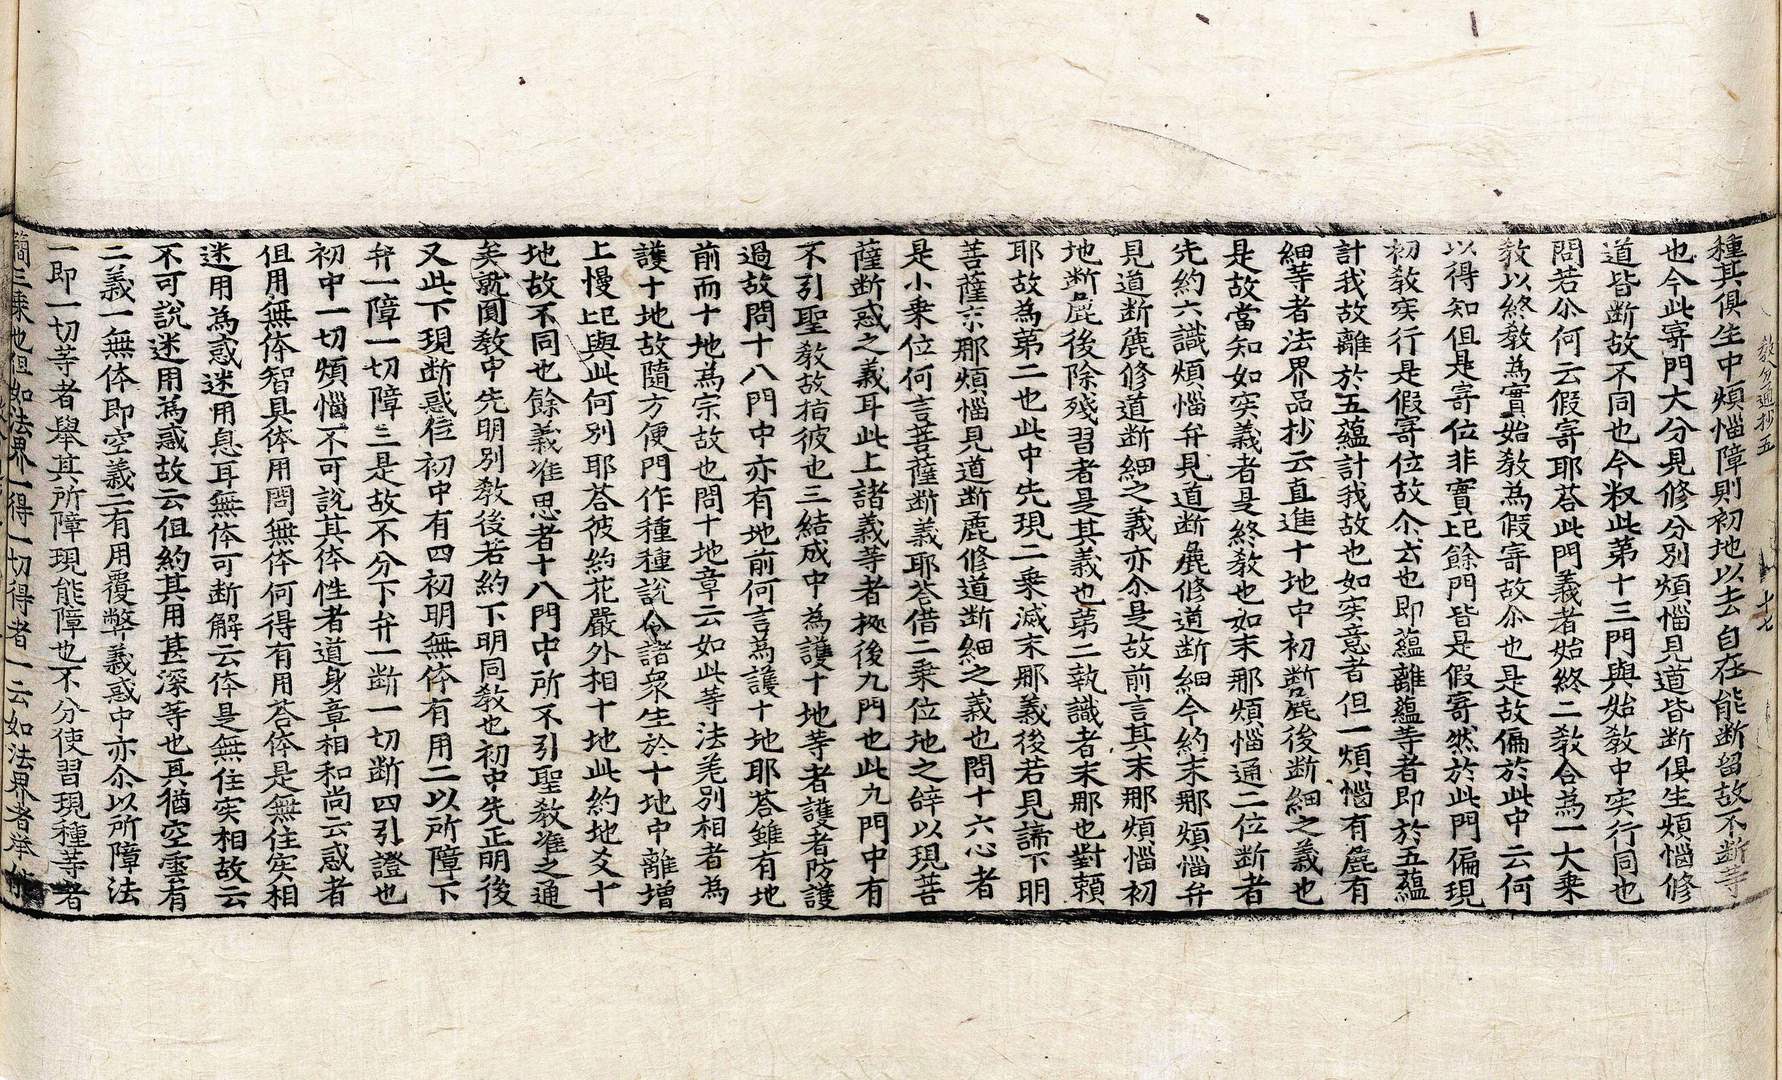 教分通抄五　十七
種其俱生中煩惱障則初地以去自在能断留故不断等
也今此寄門大分見修分別煩惱見道皆断俱生煩惱修
道皆断故不同也今叙此第十三門與始教中实行同也
問若尒何云假寄耶荅此門義者始終二教合為一大乘
教以終教為實始教為假寄故尒也是故偏於此中云何
以得知但是寄位非實記餘門皆是假寄然於此門偏現
初教实行是假寄位故尒云也即蘊離蘊等者即於五蘊
計我故離於五蘊計我故也如实意者但一煩惱有麁有
細等者法界品抄云直進十地中初断麁後断細之義也
是故當知如实義者是終教也如末那煩惱通二位断者
先約六識煩惱弁見道断麁修道断細今約末那煩惱弁
見道断麁修道断細之義亦尒是故前言其末那煩惱初
地断麁後除残習者是其義也第二執識者末那也對頼
耶故為第二也此中先現二乘滅末那義後若見諦下明
菩薩末那煩惱見道断麁修道断細之義也問十六心者
是小乘位何言菩薩断義耶荅借二乘位地之辝以現菩
薩断惑之義耳此上諸義等者揔後九門也此九門中有
不引聖教故指彼也三結成中為護十地等者護者防護
過故問十八門中亦有地前何言為護十地耶荅雖有地
前而十地為宗故也問十地章云如此等法差別相者為
護十地故隨方便門作種種說令諸衆生於十地中離增
上慢記與此何別耶荅彼約花嚴外相十地此約地爻十
地故不同也餘義准思者十八門中所不引聖教准之通
矣就圓教中先明別教後若約下明同教也初中先正明後
又此下現断惑位初中有四初明無体有用二以所障下
弁一障一切障三是故不分下弁一断一切断四引證也
初中一切煩惱不可說其体性者道身章相和尚云惑者
但用無体智具体用問無体何得有用荅体是無住实相
迷用為惑迷用息耳無体可断解云体是無住实相故云
不可說迷用為惑故云但約其用甚深等也具猶空壅有
二義一無体即空義二有用覆弊義惑中亦尒以所障法
一即一切等者舉其所障現能障也不分使習現種等者
簡三乘也但如法界一得一切得者一云如法界者举